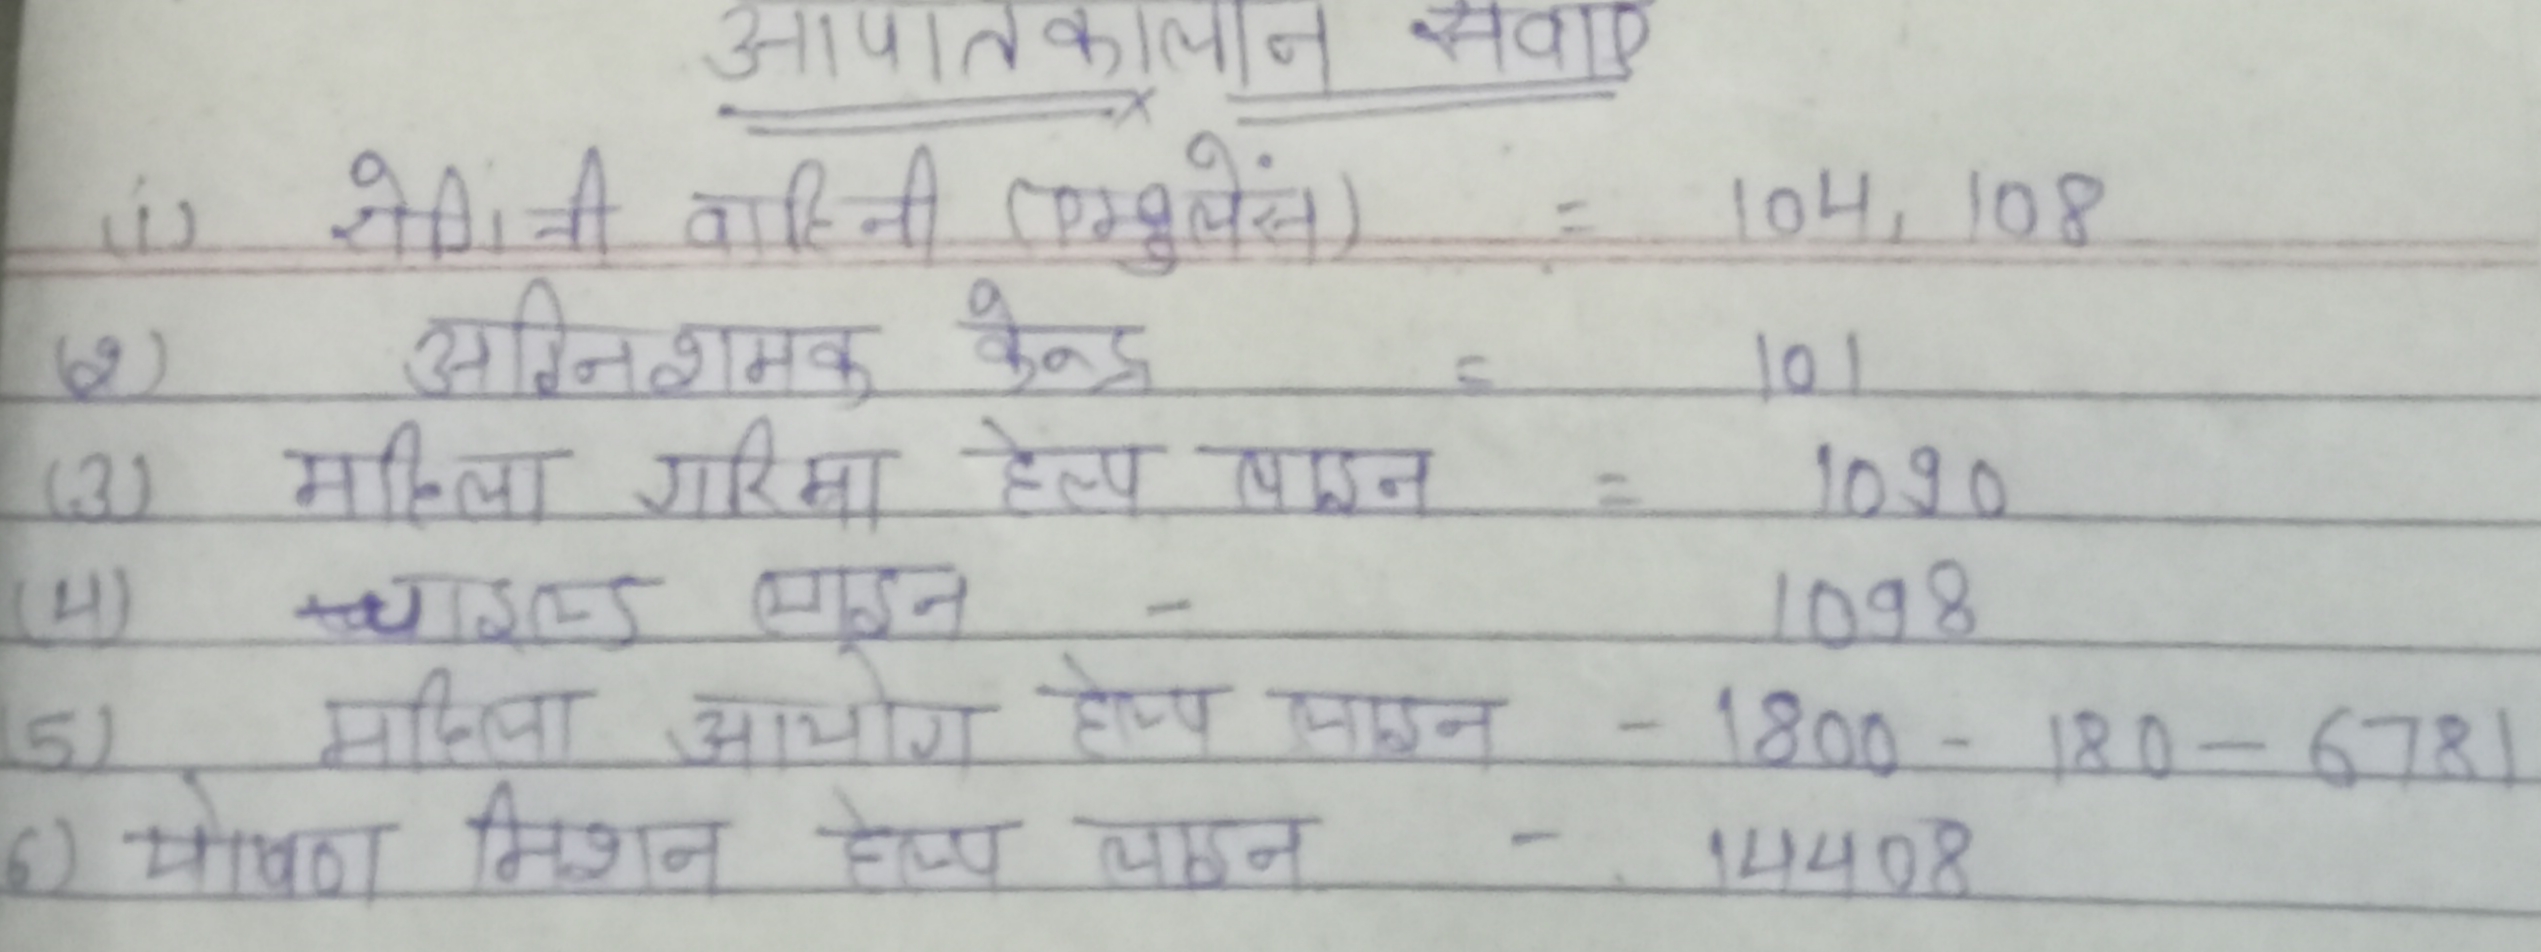 आपातकालीन सेवाएं
(1) वाहिनी (एम्बुलेंस) = 104, 108
(2) अग्निशमक केन्द्र = 101
(3) महिला गरिमा हेल्प लाइन = 1090
(4) चाइल्ड लाइन - 1098
5) महिला आयोग हेल्प लाइन - 1800 - 180 - 6781
6) पोषण मिशन हेल्प लाइन - 14408